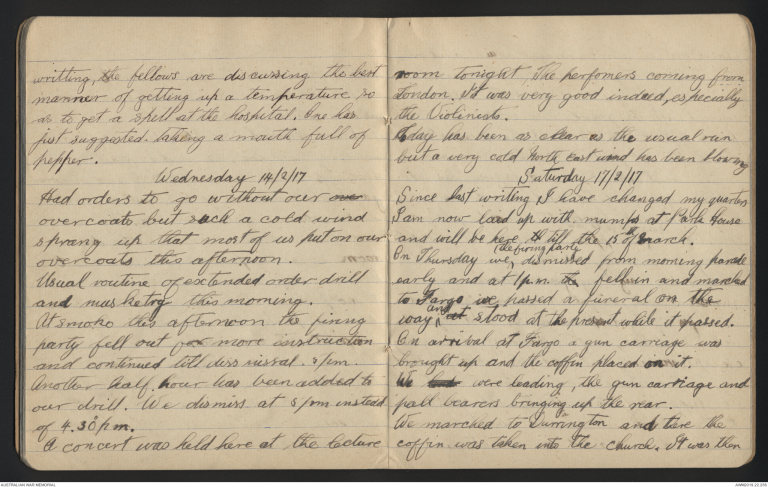 writting, the fellows are discussing the best
manner of getting up a temperature so
as to get a spell at the hospital. One has
just suggested taking a mouth full of
pepper.
Wednesday 14/2/17
Had orders to go without our over
overcoats but such a cold wind
sprang up that most of us put on our
overcoats this afternoon.
Usual routine of extended order drill
and musketry this morning.
At smoko this afternoon the firing
party fell out for more instruction
and continued till dismissal. 5 pm.
Another half hour has been added to
our drill. We dismiss at 5 pm instead
of 4.30 pm.
A concert was held here at the lecture
room tonight. The perfomers coming from
London. It was very good indeed, especially
the Violinists.
Today has been as clear as the usual rain
but a very cold North east wind has been blowing
Saturday 17/2/17
Since last writing I have changed my quarters
I am now laid up with mumps at Park House
and will be here to till the 15th of March.
On Thursday we, (the firing party) dismissed from morning parade
early and at 1 pm the fell in and marched
to Fargo we passed a funeral on the
way and at stood at the present while it passed.
On arrival at Fargo a gun carriage was
brought up and the coffin placed on it.
We were leading, the gun carriage and
pall bearers bringing up the rear.
We marched to Durrington and tere the
coffin was taken into the church. It was then
AUSTRALIAN WAR MEMORIAL